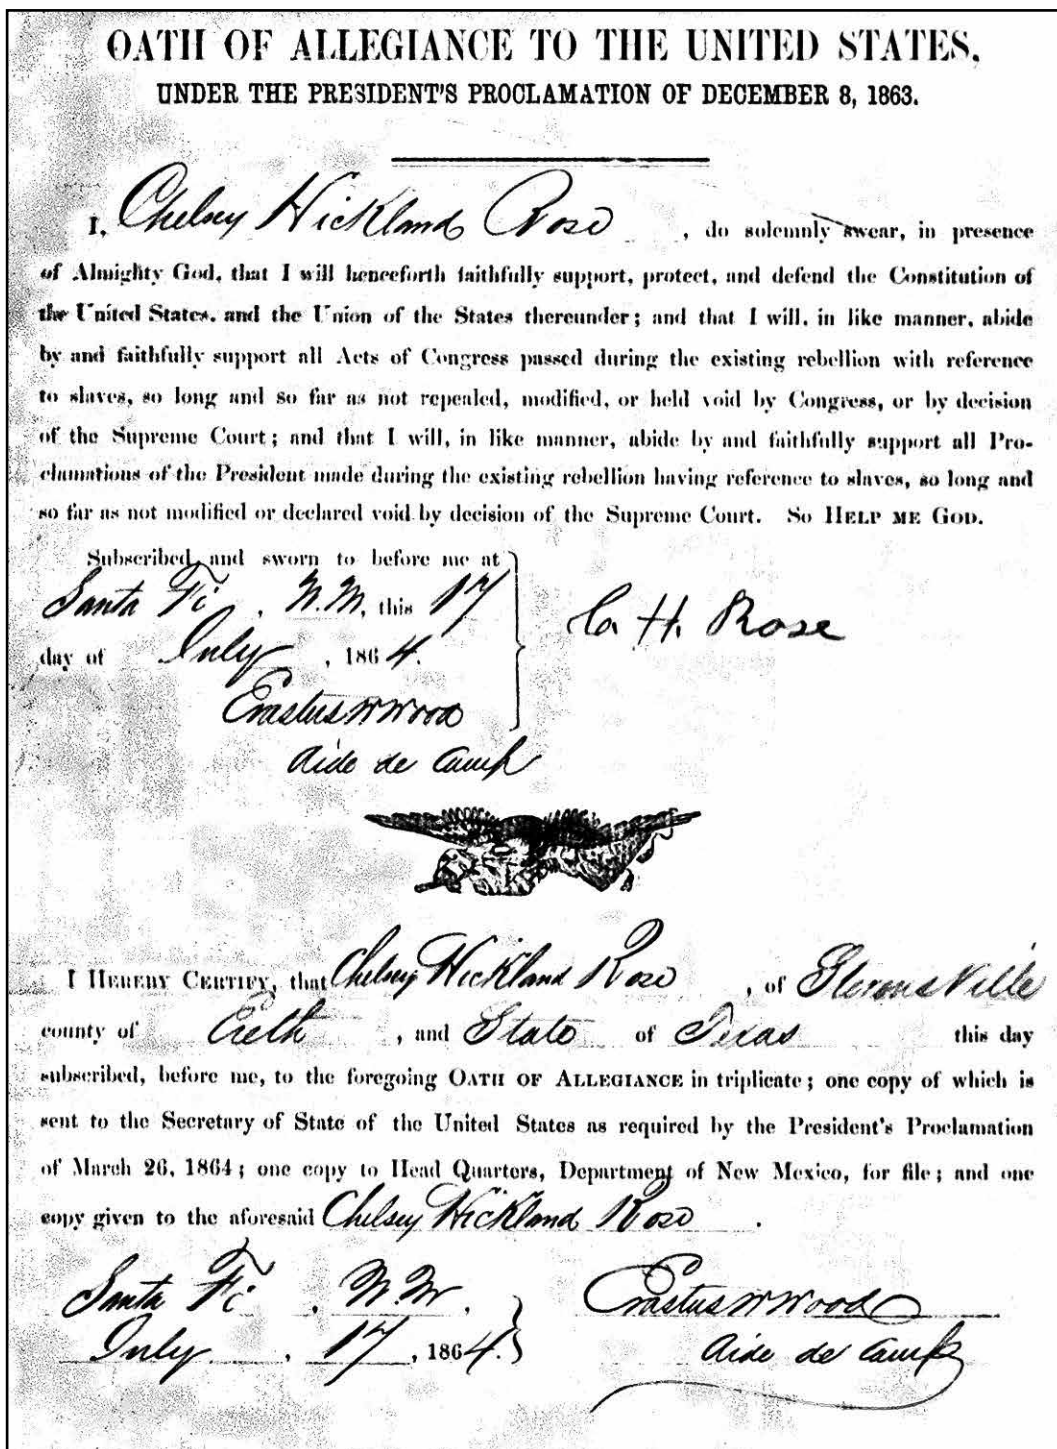 OATH OF ALLEGIANCE TO THE UNITED STATES,
UNDER THE PRESIDENT'S PROCLAMATION OF DECEMBER 8, 1863.
I, Chelsey Hickland Rose, do solemnly swear, in presence
of Almighty God, that I will henceforth faithfully support, protect, and defend the Constitution of
the United States, and the Union of the States thereunder; and that I will, in like manner, abide
by and faithfully support all Acts of Congress passed during the existing rebellion with reference
to slaves, so long and so far as not repealed, modified, or held void by Congress, or by decision
of the Supreme Court; and that I will, in like manner, abide by and faithfully support all Pro-
clamations of the President made during the existing rebellion having reference to slaves, so long and
so far as not modified or declared void by decision of the Supreme Court. So HELP ME GOD.
Subscribed and sworn to before me at
Santa Fe, N.M. this 17
day of July, 1864.
C. H. Rose
Erastus W Wood
Aide de Camp
I HEREBY CERTIFY, that Chelsey Hickland Rose, of
county of Erith, and State of Texas this day
subscribed, before me, to the foregoing OATH OF ALLEGIANCE in triplicate; one copy of which is
sent to the Secretary of State of the United States as required by the President's Proclamation
of March 26, 1864; one copy to Head Quarters, Department of New Mexico, for file; and one
copy given to the aforesaid Chelsey Hickland Rose.
Santa Fe, N.M. Erastus W Wood
July, 17, 1864. Aide de Camp